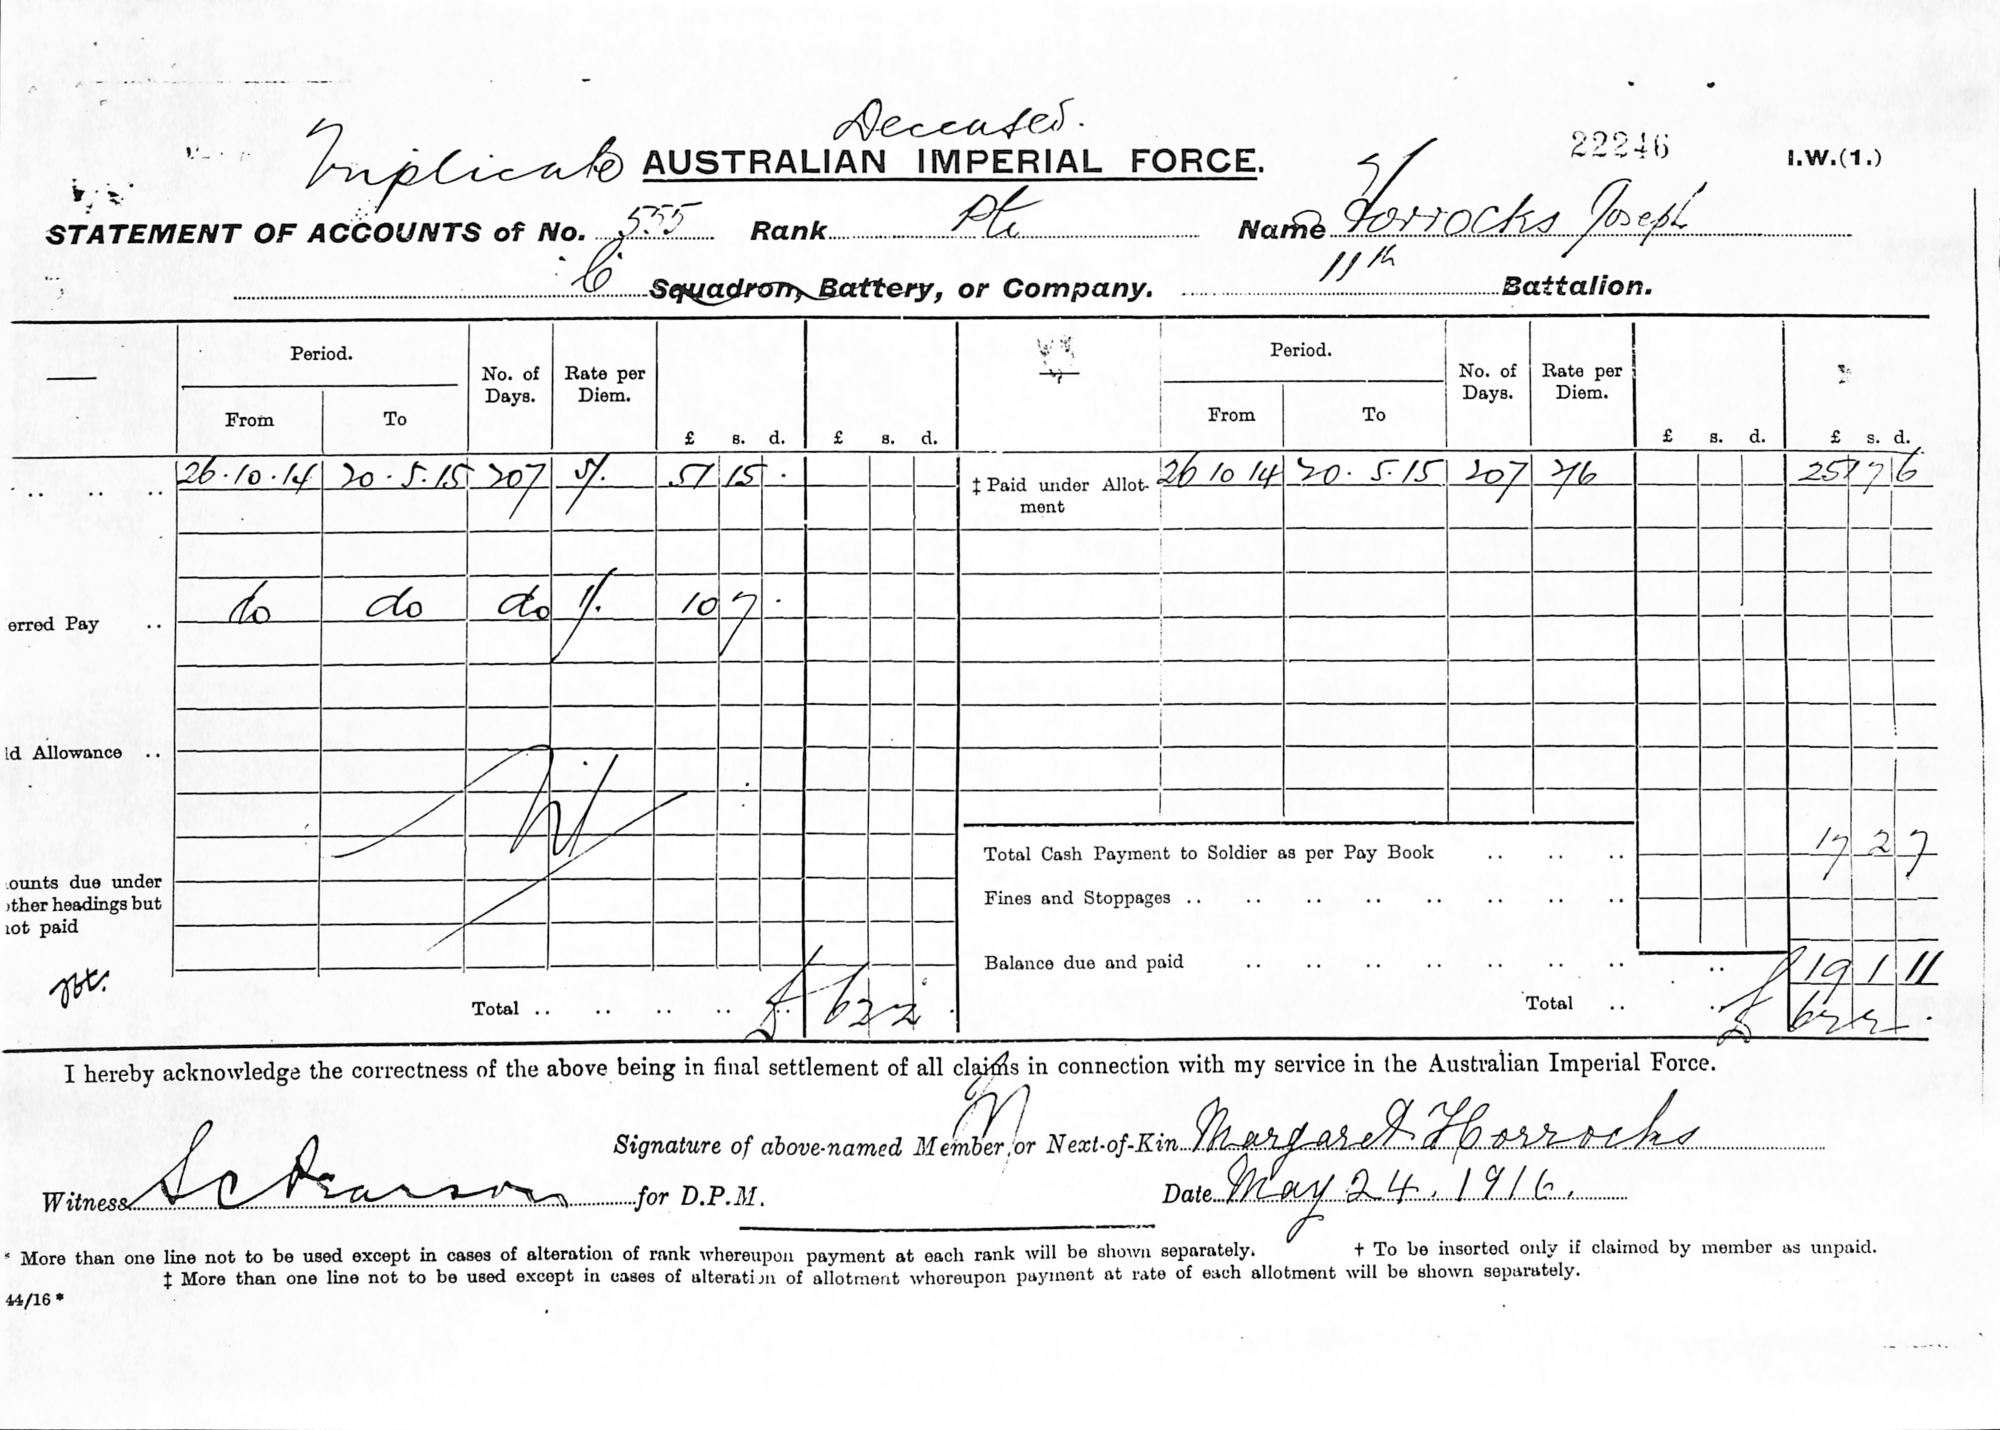 Deceased.
Triplicate AUSTRALIAN IMPERIAL FORCE. 22246 I.W.(1.)
STATEMENT OF ACCOUNTS of No. 555 Rank Pte Name Horrocks Joseph
C Squadron, Battery, or Company. 11th Battalion.
Period. No. of Days. Rate per Diem. Period. No. of Days. Rate per Diem.
From To £ s. d. £ s. d. From To £ s. d. £ s. d.
.. .. .. 26.10.14 20.5.15 207 5/. 51 15 . ‡ Paid under Allotment 26 10 14 20.5.15 207 2/6 25 17 6
erred Pay .. do do do 1/. 10 7 .
ld Allowance ..
Nil
Total Cash Payment to Soldier as per Pay Book .. .. .. 17 2 7
ounts due under
other headings but
not paid
Fines and Stoppages .. .. .. .. .. .. .. ..
Balance due and paid .. .. .. .. .. .. .. .. 19 1 11
Total .. .. .. .. £ 62 2 . Total .. .. £ 62 2 .
I hereby acknowledge the correctness of the above being in final settlement of all claims in connection with my service in the Australian Imperial Force.
Signature of above-named Member, or Next-of-Kin Margaret Horrocks
Witness S C Pearson for D.P.M. Date May 24. 1916.
* More than one line not to be used except in cases of alteration of rank whereupon payment at each rank will be shown separately. † To be inserted only if claimed by member as unpaid.
‡ More than one line not to be used except in cases of alteration of allotment whereupon payment at rate of each allotment will be shown separately.
44/16 *